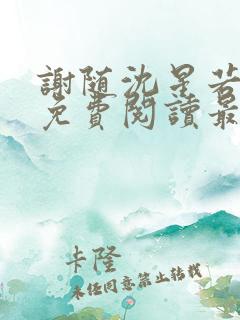 謝随沈星若
免費閱讀最
卡隆
未经同意禁止转载